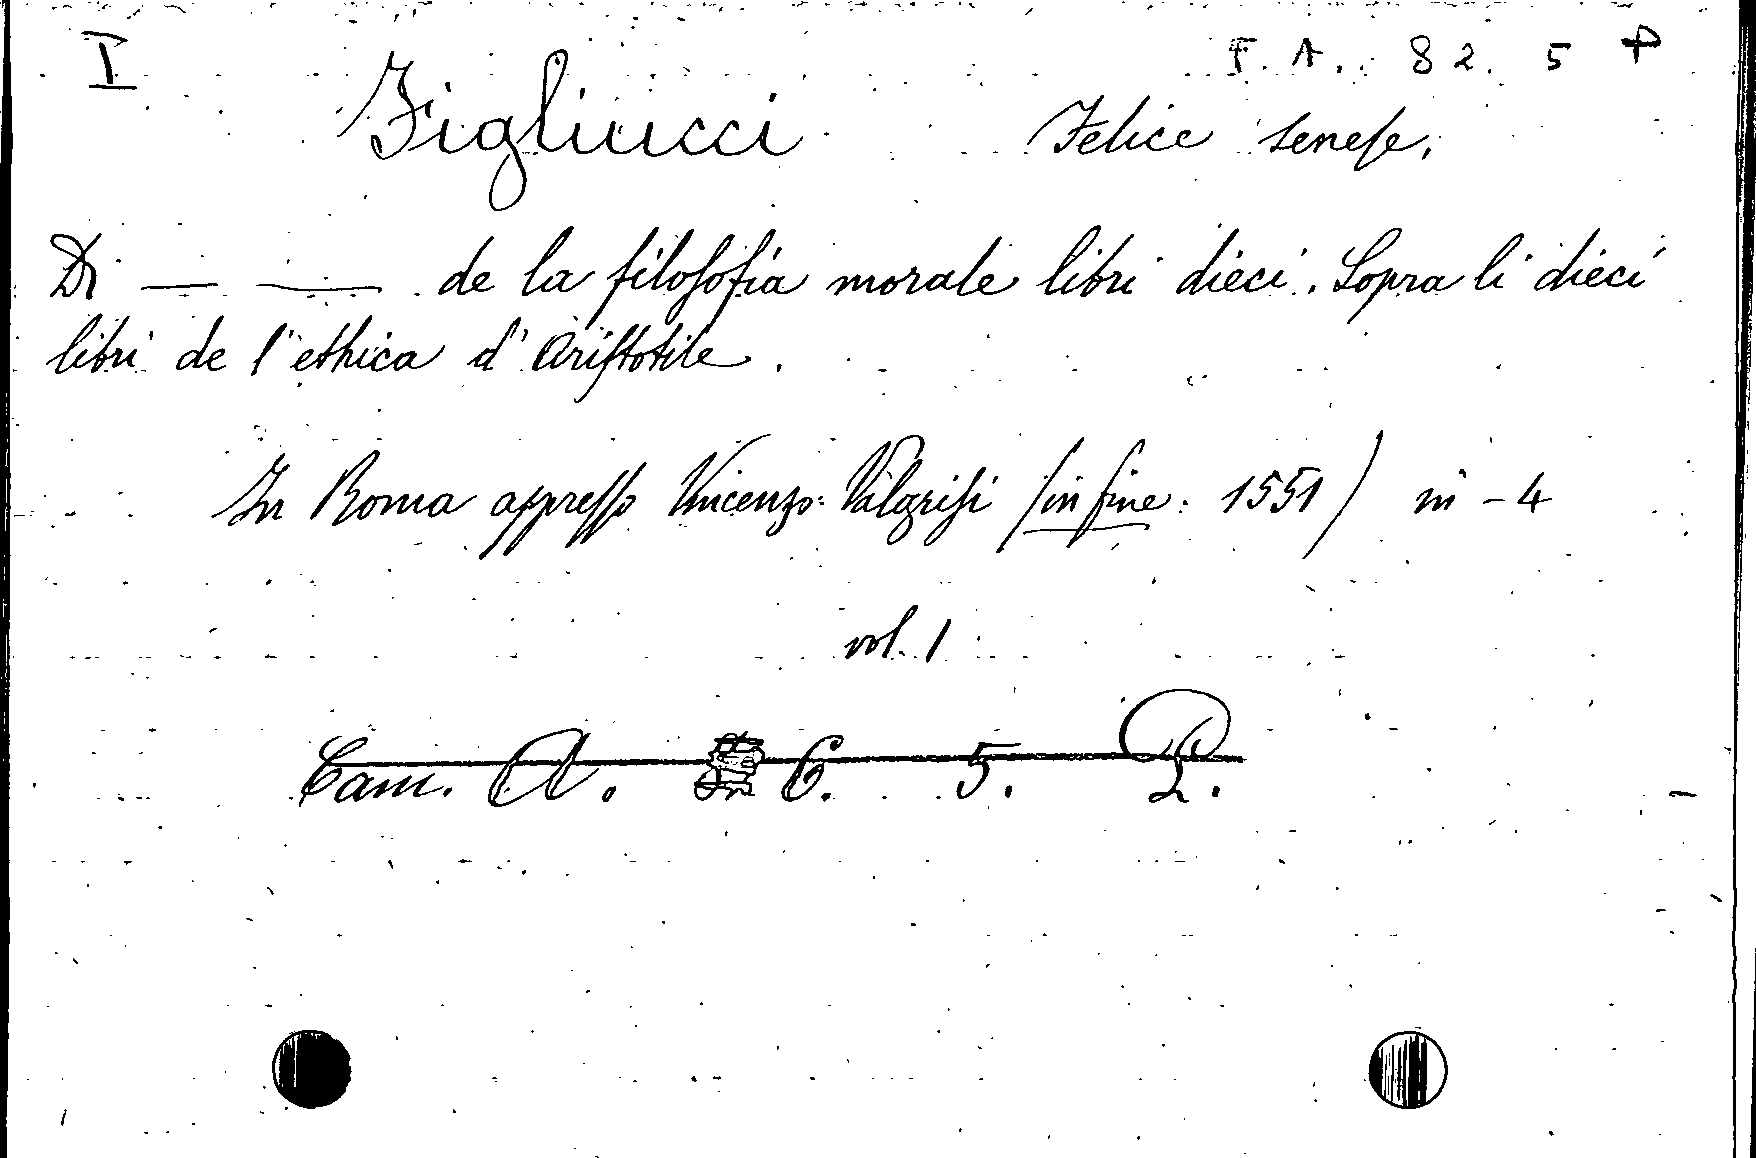 I F. A. 82. 5 P
Figliucci Felice senese,
Di — — de la filosofia morale libri dieci. Sopra li dieci
libri de l'ethica d'Aristotile.
In Roma appresso Vincenzo Valgrisi (in fine: 1551) in - 4
vol. 1
Cam. A. 6. 5. 2.